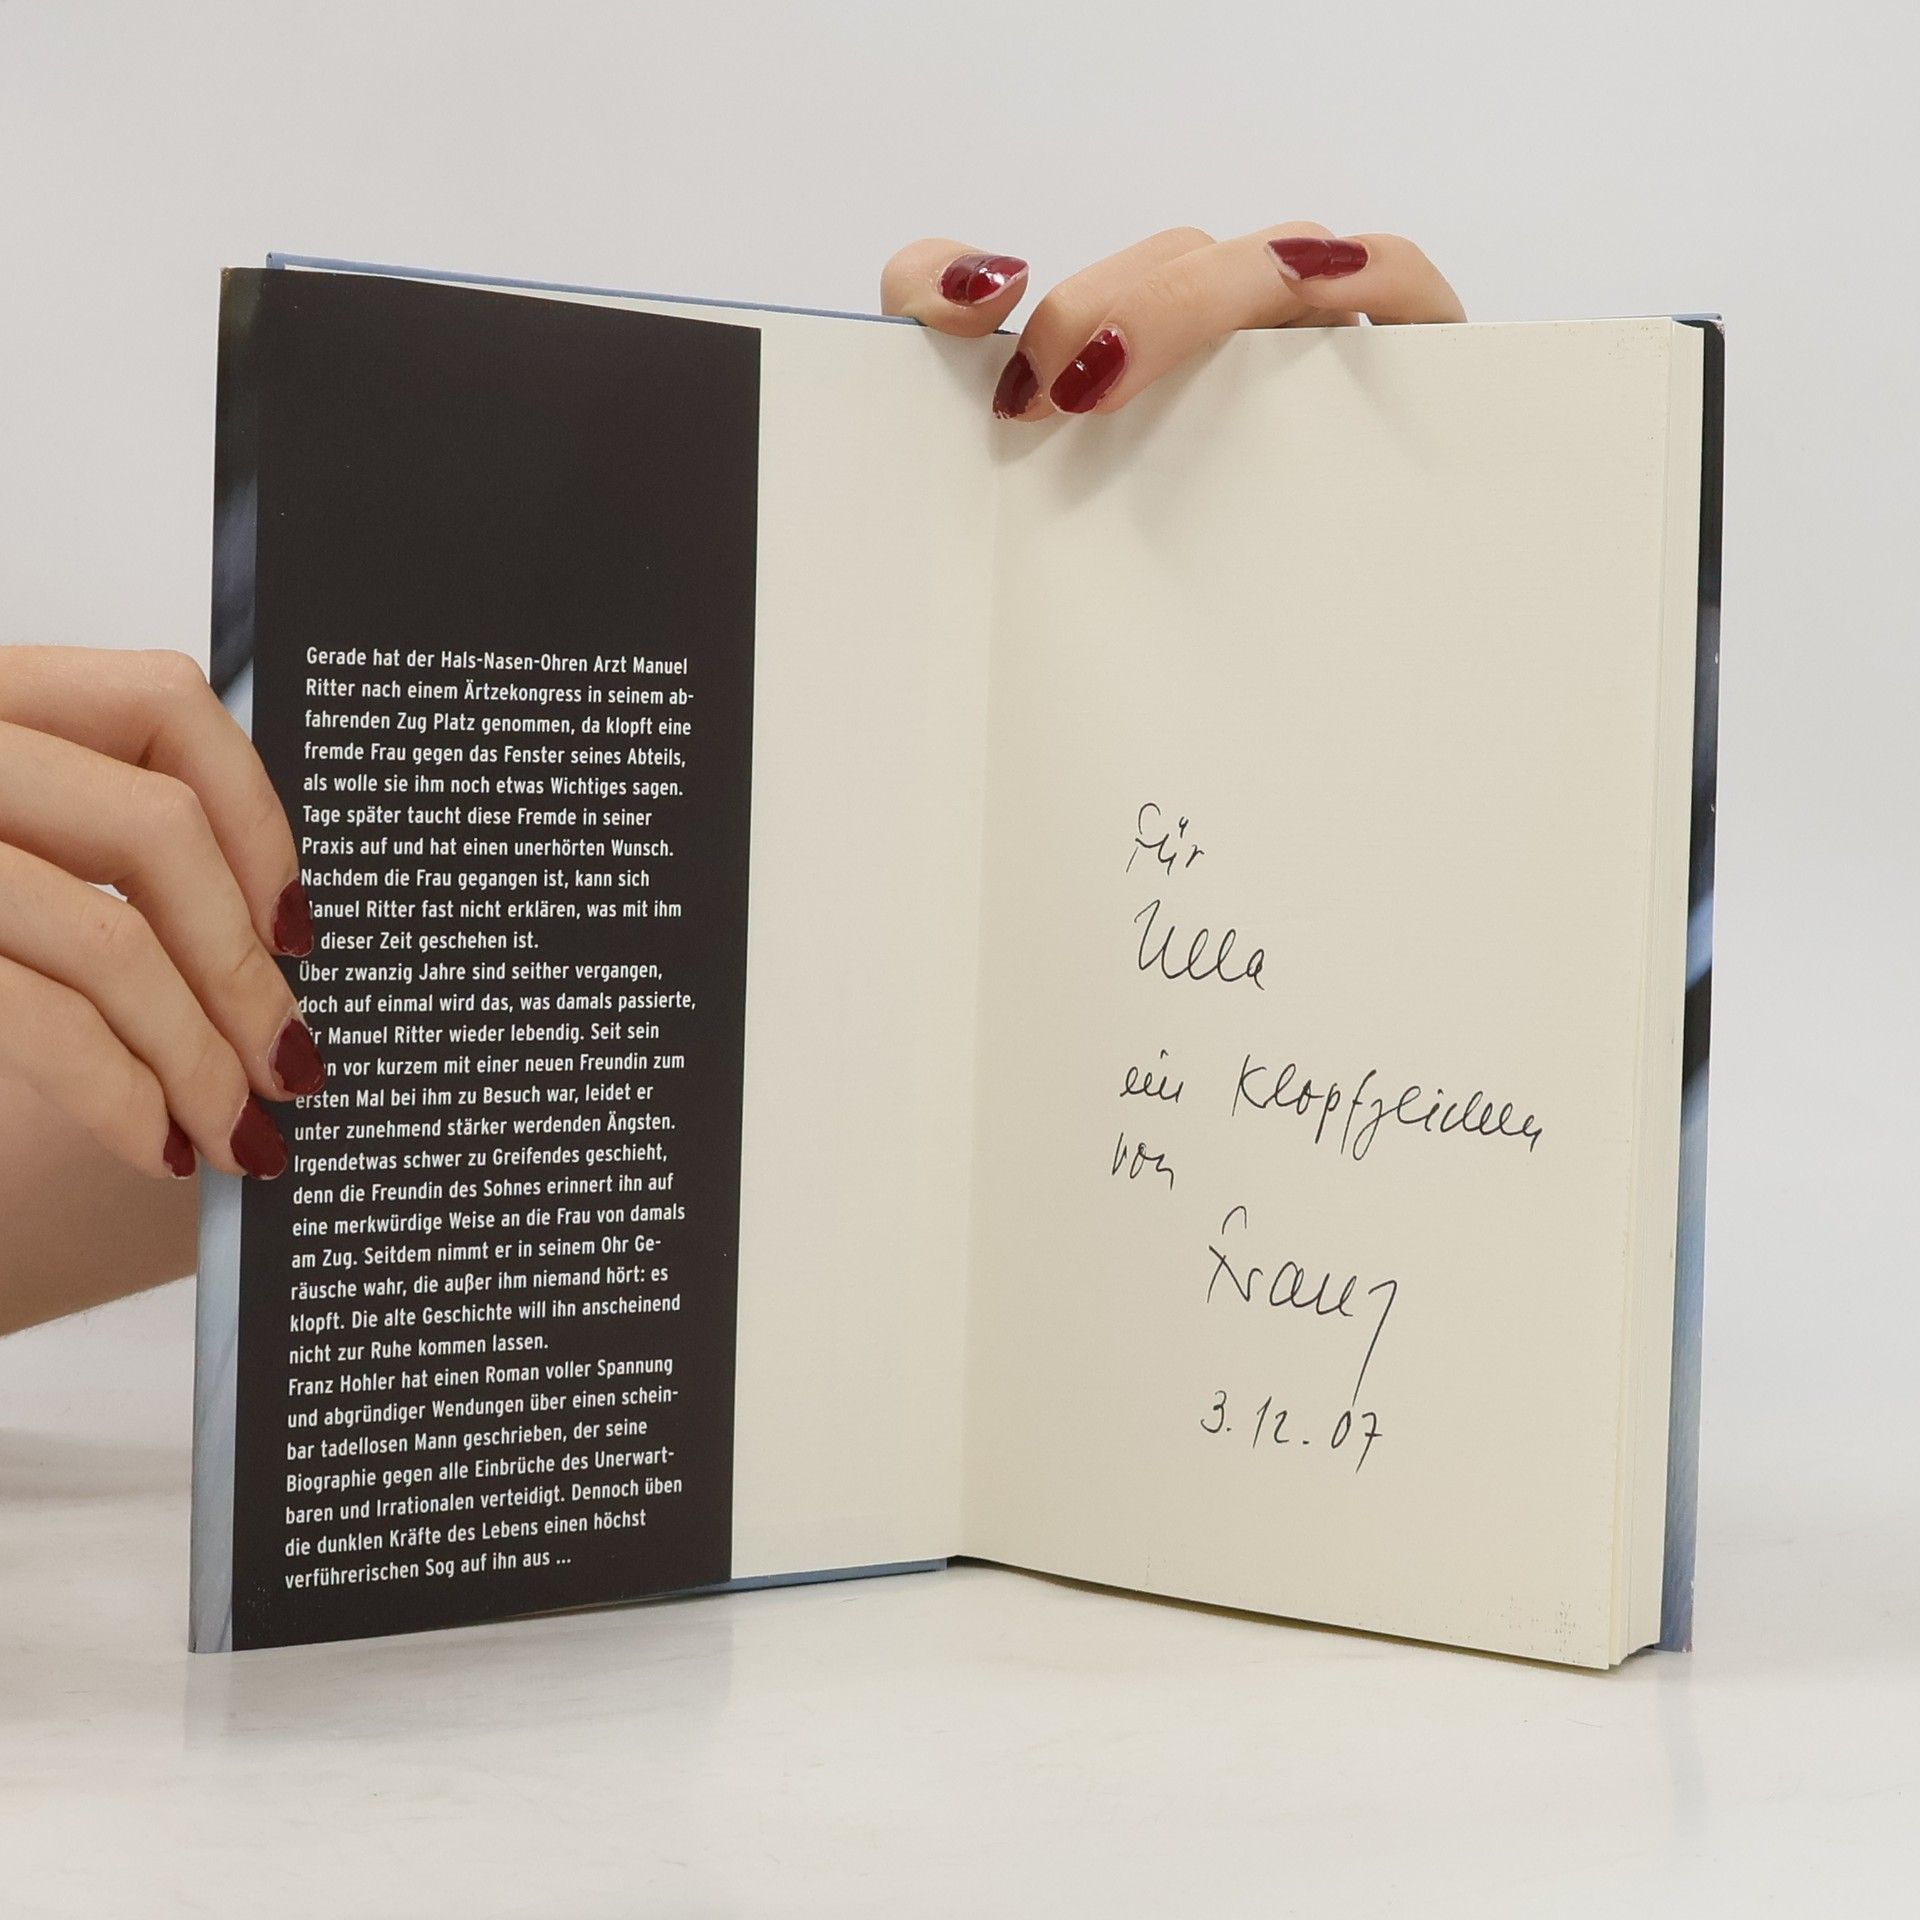 Gerade hat der Hals-Nasen-Ohren Arzt Manuel
Ritter nach einem Ärtzekongress in seinem ab-
fahrenden Zug Platz genommen, da klopft eine
fremde Frau gegen das Fenster seines Abteils,
als wolle sie ihm noch etwas Wichtiges sagen.
Tage später taucht diese Fremde in seiner
Praxis auf und hat einen unerhörten Wunsch.
Nachdem die Frau gegangen ist, kann sich
anuel Ritter fast nicht erklären, was mit ihm
dieser Zeit geschehen ist.
Über zwanzig Jahre sind seither vergangen,
doch auf einmal wird das, was damals passierte,
r Manuel Ritter wieder lebendig. Seit sein
n vor kurzem mit einer neuen Freundin zum
ersten Mal bei ihm zu Besuch war, leidet er
unter zunehmend stärker werdenden Ängsten.
Irgendetwas schwer zu Greifendes geschieht,
denn die Freundin des Sohnes erinnert ihn auf
eine merkwürdige Weise an die Frau von damals
am Zug. Seitdem nimmt er in seinem Ohr Ge-
räusche wahr, die außer ihm niemand hört: es
klopft. Die alte Geschichte will ihn anscheinend
nicht zur Ruhe kommen lassen.
Franz Hohler hat einen Roman voller Spannung
und abgründiger Wendungen über einen schein-
bar tadellosen Mann geschrieben, der seine
Biographie gegen alle Einbrüche des Unerwart-
baren und Irrationalen verteidigt. Dennoch üben
die dunklen Kräfte des Lebens einen höchst
verführerischen Sog auf ihn aus ...
Für
Ulla
ein Klopfzeichen
von
Franz
3.12.07